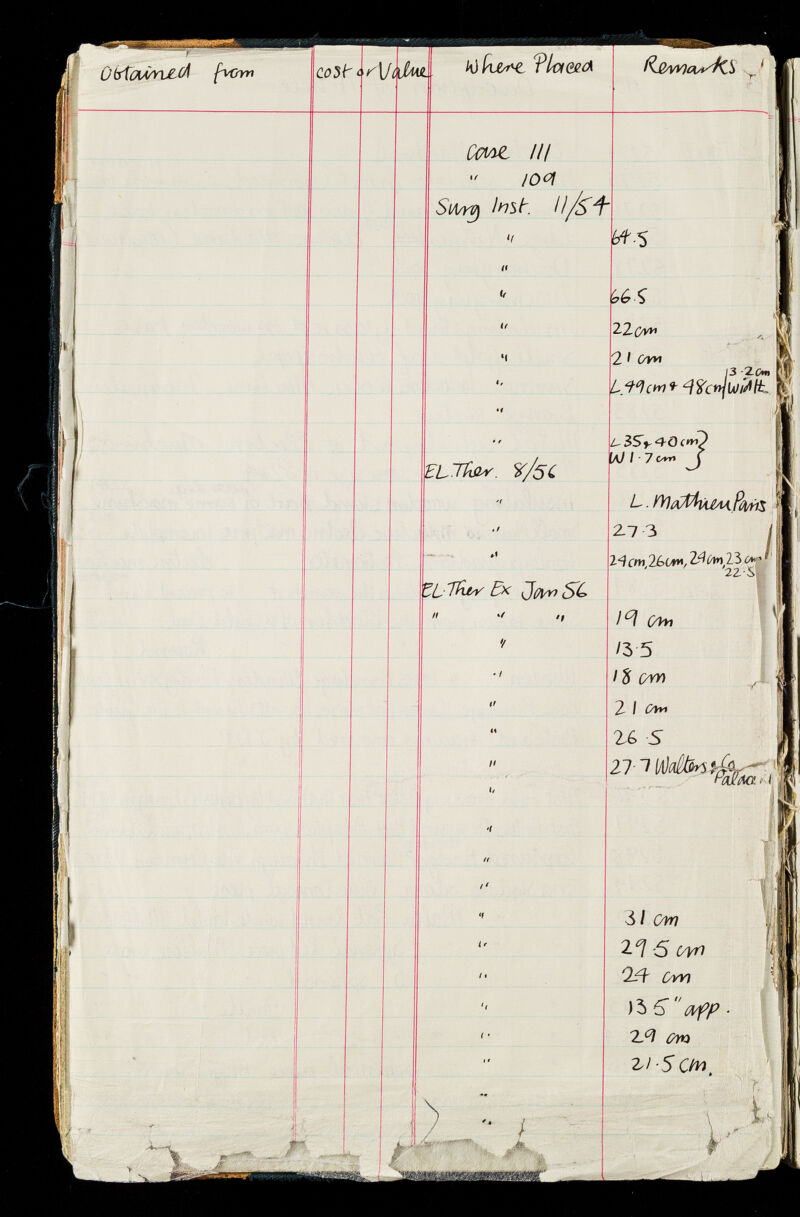 Obtained from cost or Value Where Placed Remarks
Case 111
" 109
Surg Inst. 11/54
" 64.5
"
" 66.5
" 22cm
" 21 cm
3.2cm
" L.49cm & 48cm Width
"
" L 35 & 40cm }
W 1.7cm
EL.Ther. 8/56
" L. Mathieu Paris
" 27.3
" 24cm, 26cm, 24cm, 23cm
22.5
EL.Ther Ex Jan 56
" " " 19 cm
" 13.5
" 18 cm
" 21 cm
" 26.5
" 27.7 Walters & Co
Palace
"
"
"
"
" 31 cm
" 29.5 cm
" 24 cm
" 13 5" app.
" 29 cm
" 21.5 cm.
"
"